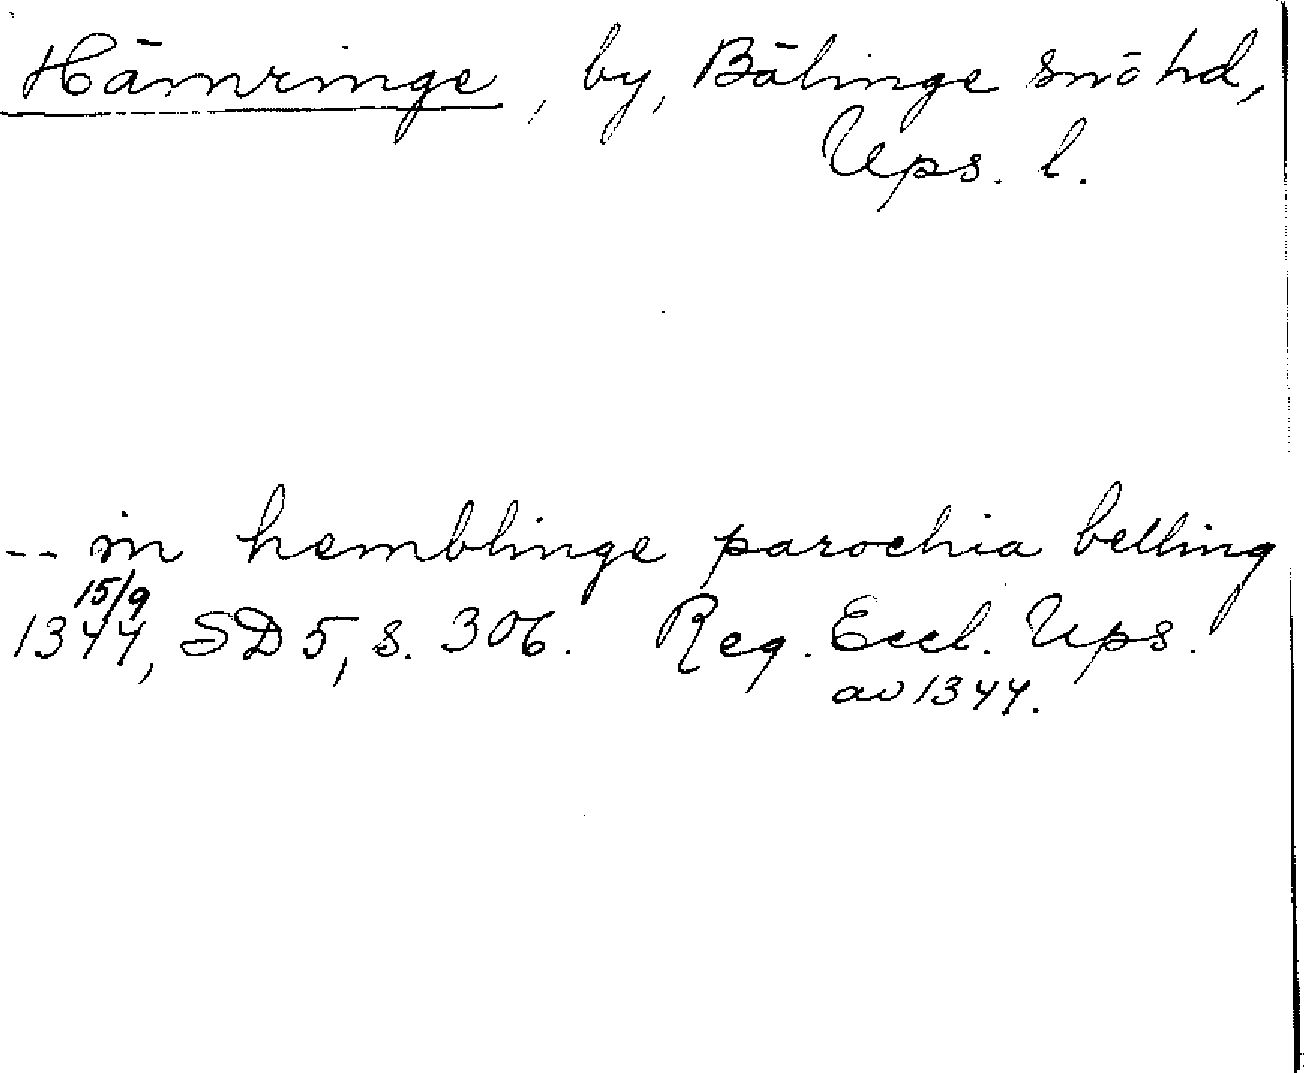 Hämringe, by, Bälinge sn o hd,
Ups. l.
-- in hemblinge parochia belling
15/9
1344, SD 5, s. 306. Reg. Eccl. Ups.
av 1344.